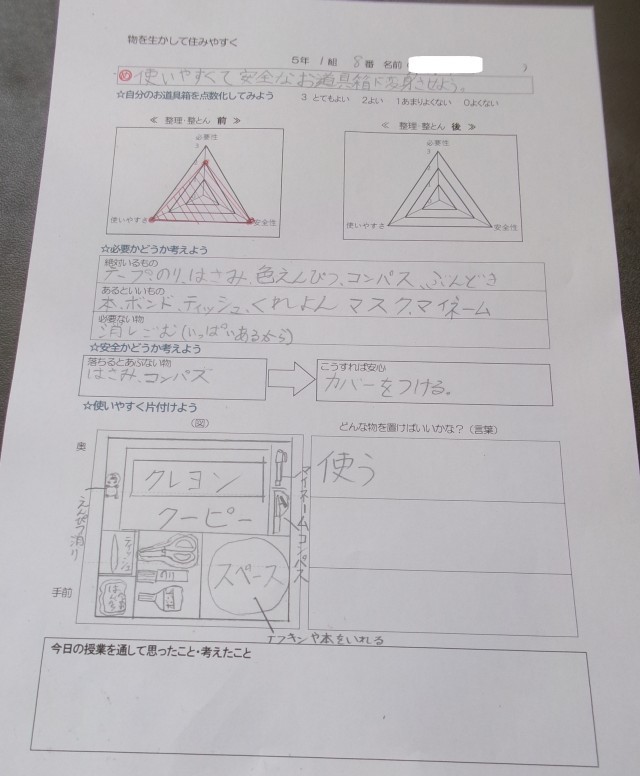 物を生かして住みやすく
5年 1組 8番 名前
め 使いやすくて安全なお道具箱に変身させよう。
☆自分のお道具箱を点数化してみよう 3 とてもよい 2よい 1あまりよくない 0よくない
≪ 整理・整とん 前 ≫
≪ 整理・整とん 後 ≫
必要性
3
使いやすさ
安全性
必要性
3
使いやすさ
安全性
☆必要かどうか考えよう
絶対いるもの
テープ、のり、はさみ、色えんぴつ、コンパス、ぶんどき
あるといいもの
本、ボンド、ティッシュ、くれよん マスク、マイネーム
必要ない物
消しごむ(いっぱいあるから)
☆安全かどうか考えよう
落ちるとあぶない物
はさみ、コンパス
こうすれば安心
カバーをつける。
☆使いやすく片付けよう
(図)
どんな物を置けばいいかな?(言葉)
奥
手前
クレヨン
クーピー
マイネーム
コンパス
えんぴつ消り
ティッシュ
のり
スペース
ゾフキンや本をいれる
使う
今日の授業を通して思ったこと・考えたこと